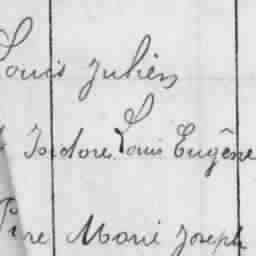 Louis Julien
Isidore Louis Eugène
Pierre Marie Joseph